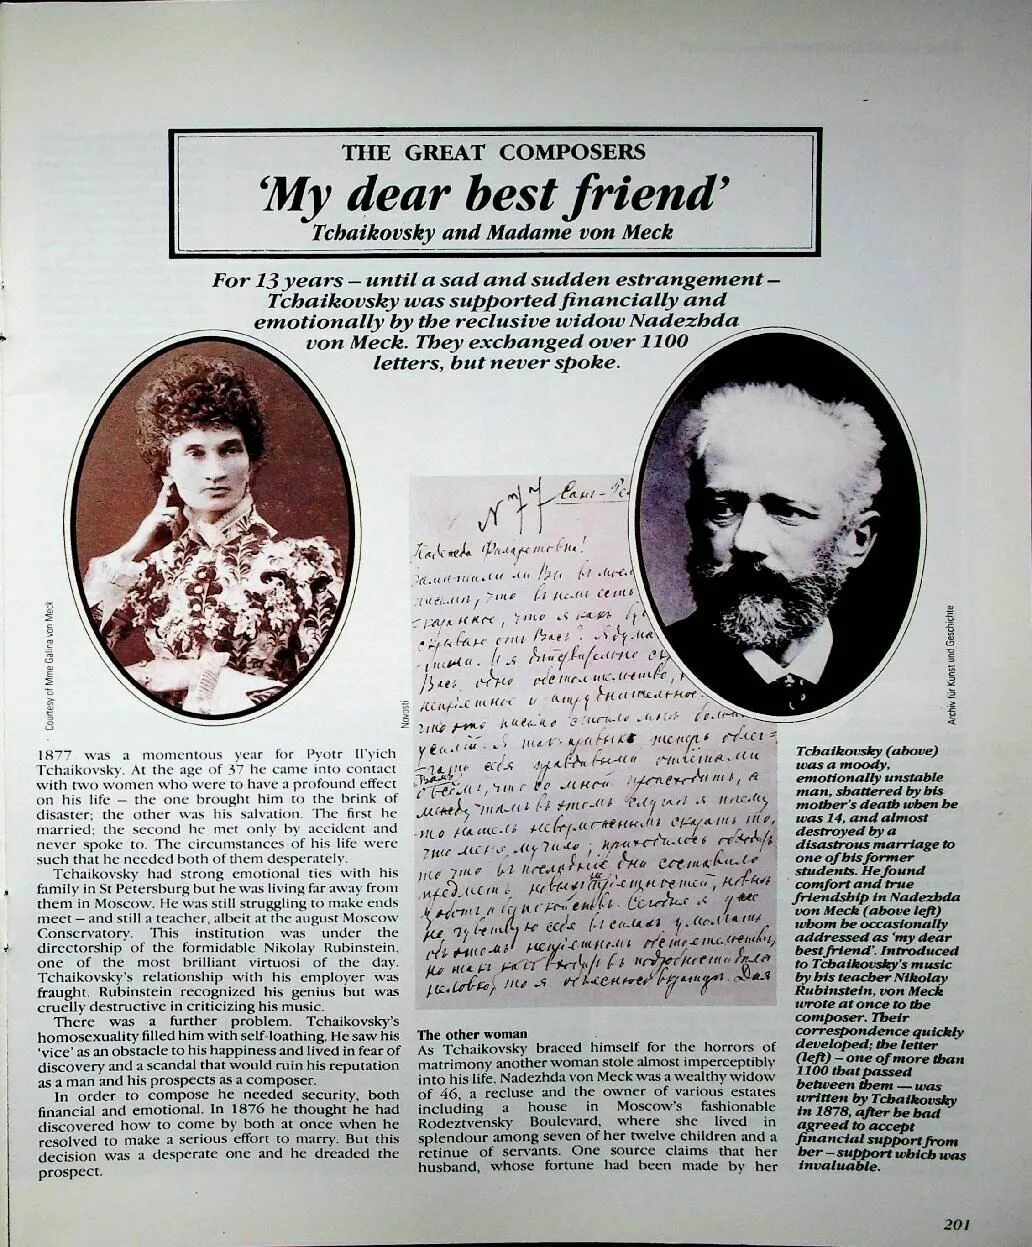 THE GREAT COMPOSERS
‘My dear best friend’
Tchaikovsky and Madame von Meck
For 13 years – until a sad and sudden estrangement –
Tchaikovsky was supported financially and
emotionally by the reclusive widow Nadezhda
von Meck. They exchanged over 1100
letters, but never spoke.
Courtesy of Mme Galina von Meck
Novosti
Archiv für Kunst und Geschichte
N 77
Надежда Филаретовна!
1877 was a momentous year for Pyotr Il'yich
Tchaikovsky. At the age of 37 he came into contact
with two women who were to have a profound effect
on his life – the one brought him to the brink of
disaster; the other was his salvation. The first he
married; the second he met only by accident and
never spoke to. The circumstances of his life were
such that he needed both of them desperately.
Tchaikovsky had strong emotional ties with his
family in St Petersburg but he was living far away from
them in Moscow. He was still struggling to make ends
meet – and still a teacher, albeit at the august Moscow
Conservatory. This institution was under the
directorship of the formidable Nikolay Rubinstein,
one of the most brilliant virtuosi of the day.
Tchaikovsky's relationship with his employer was
fraught. Rubinstein recognized his genius but was
cruelly destructive in criticizing his music.
There was a further problem. Tchaikovsky's
homosexuality filled him with self-loathing. He saw his
'vice' as an obstacle to his happiness and lived in fear of
discovery and a scandal that would ruin his reputation
as a man and his prospects as a composer.
In order to compose he needed security, both
financial and emotional. In 1876 he thought he had
discovered how to come by both at once when he
resolved to make a serious effort to marry. But this
decision was a desperate one and he dreaded the
prospect.
The other woman
As Tchaikovsky braced himself for the horrors of
matrimony another woman stole almost imperceptibly
into his life. Nadezhda von Meck was a wealthy widow
of 46, a recluse and the owner of various estates
including a house in Moscow's fashionable
Rodeztvensky Boulevard, where she lived in
splendour among seven of her twelve children and a
retinue of servants. One source claims that her
husband, whose fortune had been made by her
Tchaikovsky (above)
was a moody,
emotionally unstable
man, shattered by his
mother's death when he
was 14, and almost
destroyed by a
disastrous marriage to
one of his former
students. He found
comfort and true
friendship in Nadezhda
von Meck (above left)
whom he occasionally
addressed as 'my dear
best friend'. Introduced
to Tchaikovsky's music
by his teacher Nikolay
Rubinstein, von Meck
wrote at once to the
composer. Their
correspondence quickly
developed; the letter
(left) – one of more than
1100 that passed
between them — was
written by Tchaikovsky
in 1878, after he had
agreed to accept
financial support from
her – support which was
invaluable.
201